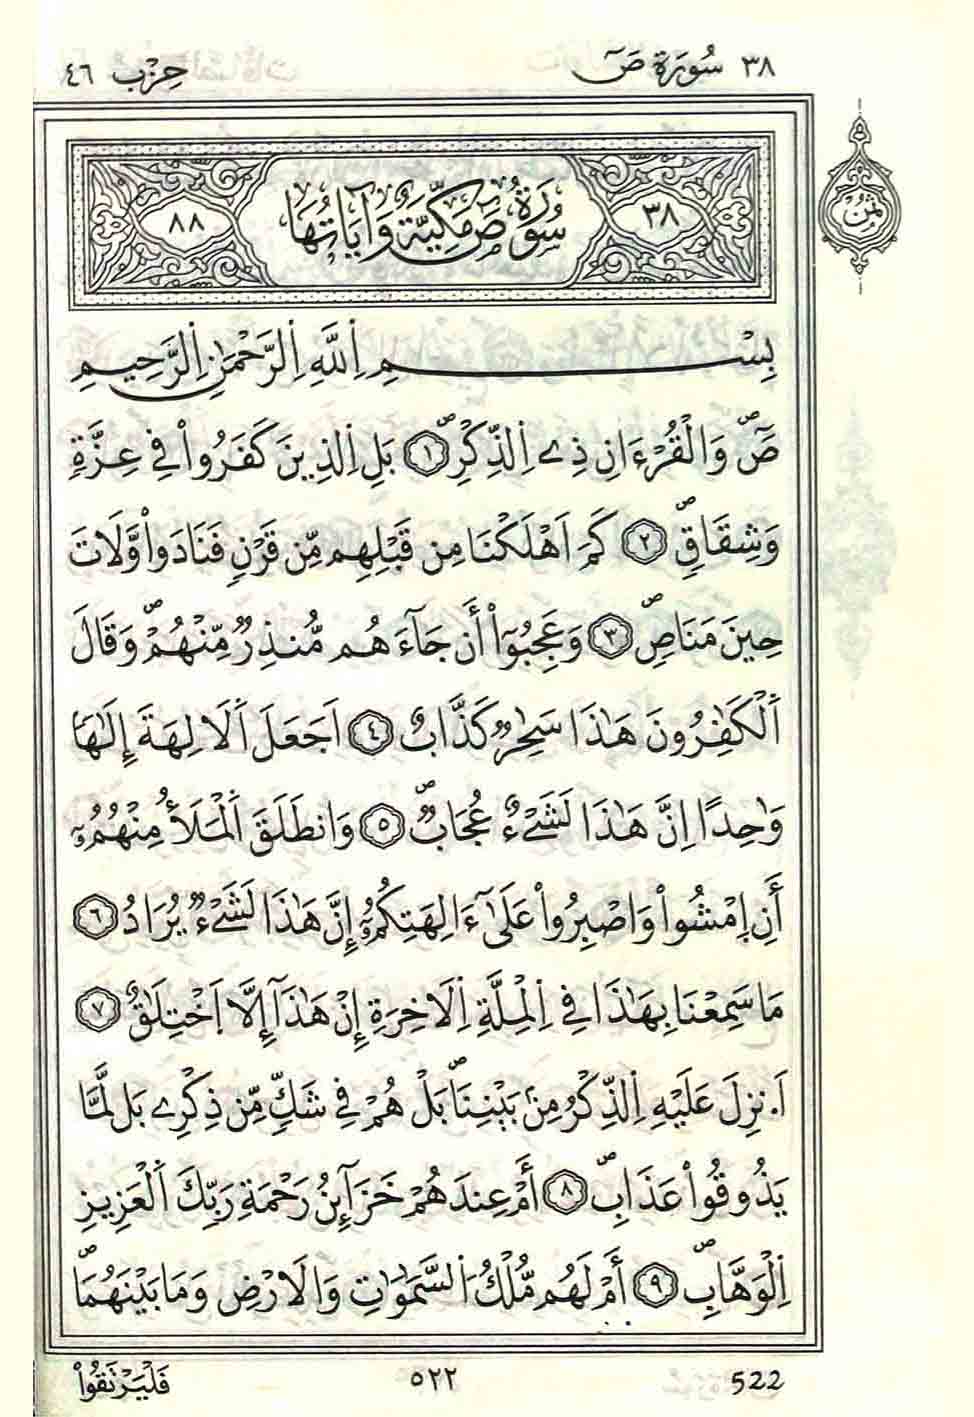 ٣٨ سُورَة صٓ حِزْب ٤٦
٣٨ سُورَةُ صٓ مَكِّيَّةٌ وَآيَاتُهَا ٨٨
ثمن
بِسْمِ اِ۬للَّهِ اِ۬لرَّحْمَٰنِ اِ۬لرَّحِيمِ
صٓۖ وَالْقُرْءَانِ ذِے اِ۬لذِّكْرِۖ ١ بَلِ اِ۬لذِينَ كَفَرُواْ فِے عِزَّةٖ
وَشِقَاقٖۖ ٢ كَمَ اَهْلَكْنَا مِن قَبْلِهِم مِّن قَرْنٖ فَنَادَواْ وَّلَاتَ
حِينَ مَنَاصٖۖ ٣ وَعَجِبُوٓاْ أَن جَآءَهُم مُّنذِرٞ مِّنْهُمْۖ وَقَالَ
اَ۬لْكَٰفِرُونَ هَٰذَا سَٰحِرٞ كَذَّابٌ ٤ اَجَعَلَ اَ۬لَالِهَةَ إِلَٰهاٗ
وَٰحِداً اِنَّ هَٰذَا لَشَےْءٌ عُجَابٞۖ ٥ وَانطَلَقَ اَ۬لْمَلَأُ مِنْهُمُۥٓ
أَنِ اِ۪مْشُواْ وَاصْبِرُواْ عَلَىٰٓ ءَالِهَتِكُمُۥٓ إِنَّ هَٰذَا لَشَےْءٞ يُرَادُ ٦
مَا سَمِعْنَا بِهَٰذَا فِے اِ۬لْمِلَّةِ اِ۬لَاخِرَةِ إِنْ هَٰذَآ إِلَّا اَ۪خْتِلَٰقٌ ٧
اَ.نزِلَ عَلَيْهِ اِ۬لذِّكْرُ مِنۢ بَيْنِنَاۖ بَلْ هُمْ فِے شَكّٖ مِّن ذِكْرِے بَل لَّمَّا
يَذُوقُواْ عَذَابِۖ ٨ أَمْ عِندَهُمْ خَزَآئِنُ رَحْمَةِ رَبِّكَ اَ۬لْعَزِيزِ
اِ۬لْوَهَّابِۖ ٩ أَمْ لَهُم مُّلْكُ اُ۬لسَّمَٰوَٰتِ وَالَارْضِ وَمَا بَيْنَهُمَاۖ
فَلْيَرْتَقُواْ ٥٢٢ 522